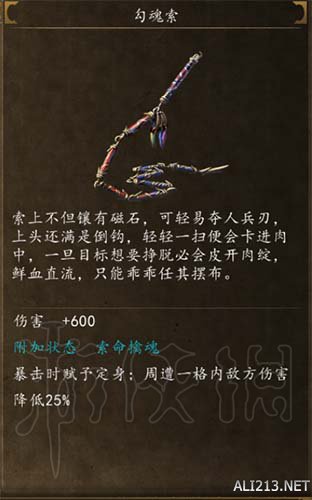 勾魂索
索上不但镶有磁石，可轻易夺人兵刃，
上头还满是倒钩，轻轻一扫便会卡进肉
中，一旦目标想要挣脱必会皮开肉绽，
鲜血直流，只能乖乖任其摆布。
伤害 +600
附加状态 索命擒魂
暴击时赋予定身；周遭一格内敌方伤害
降低25%
ALI213.NET